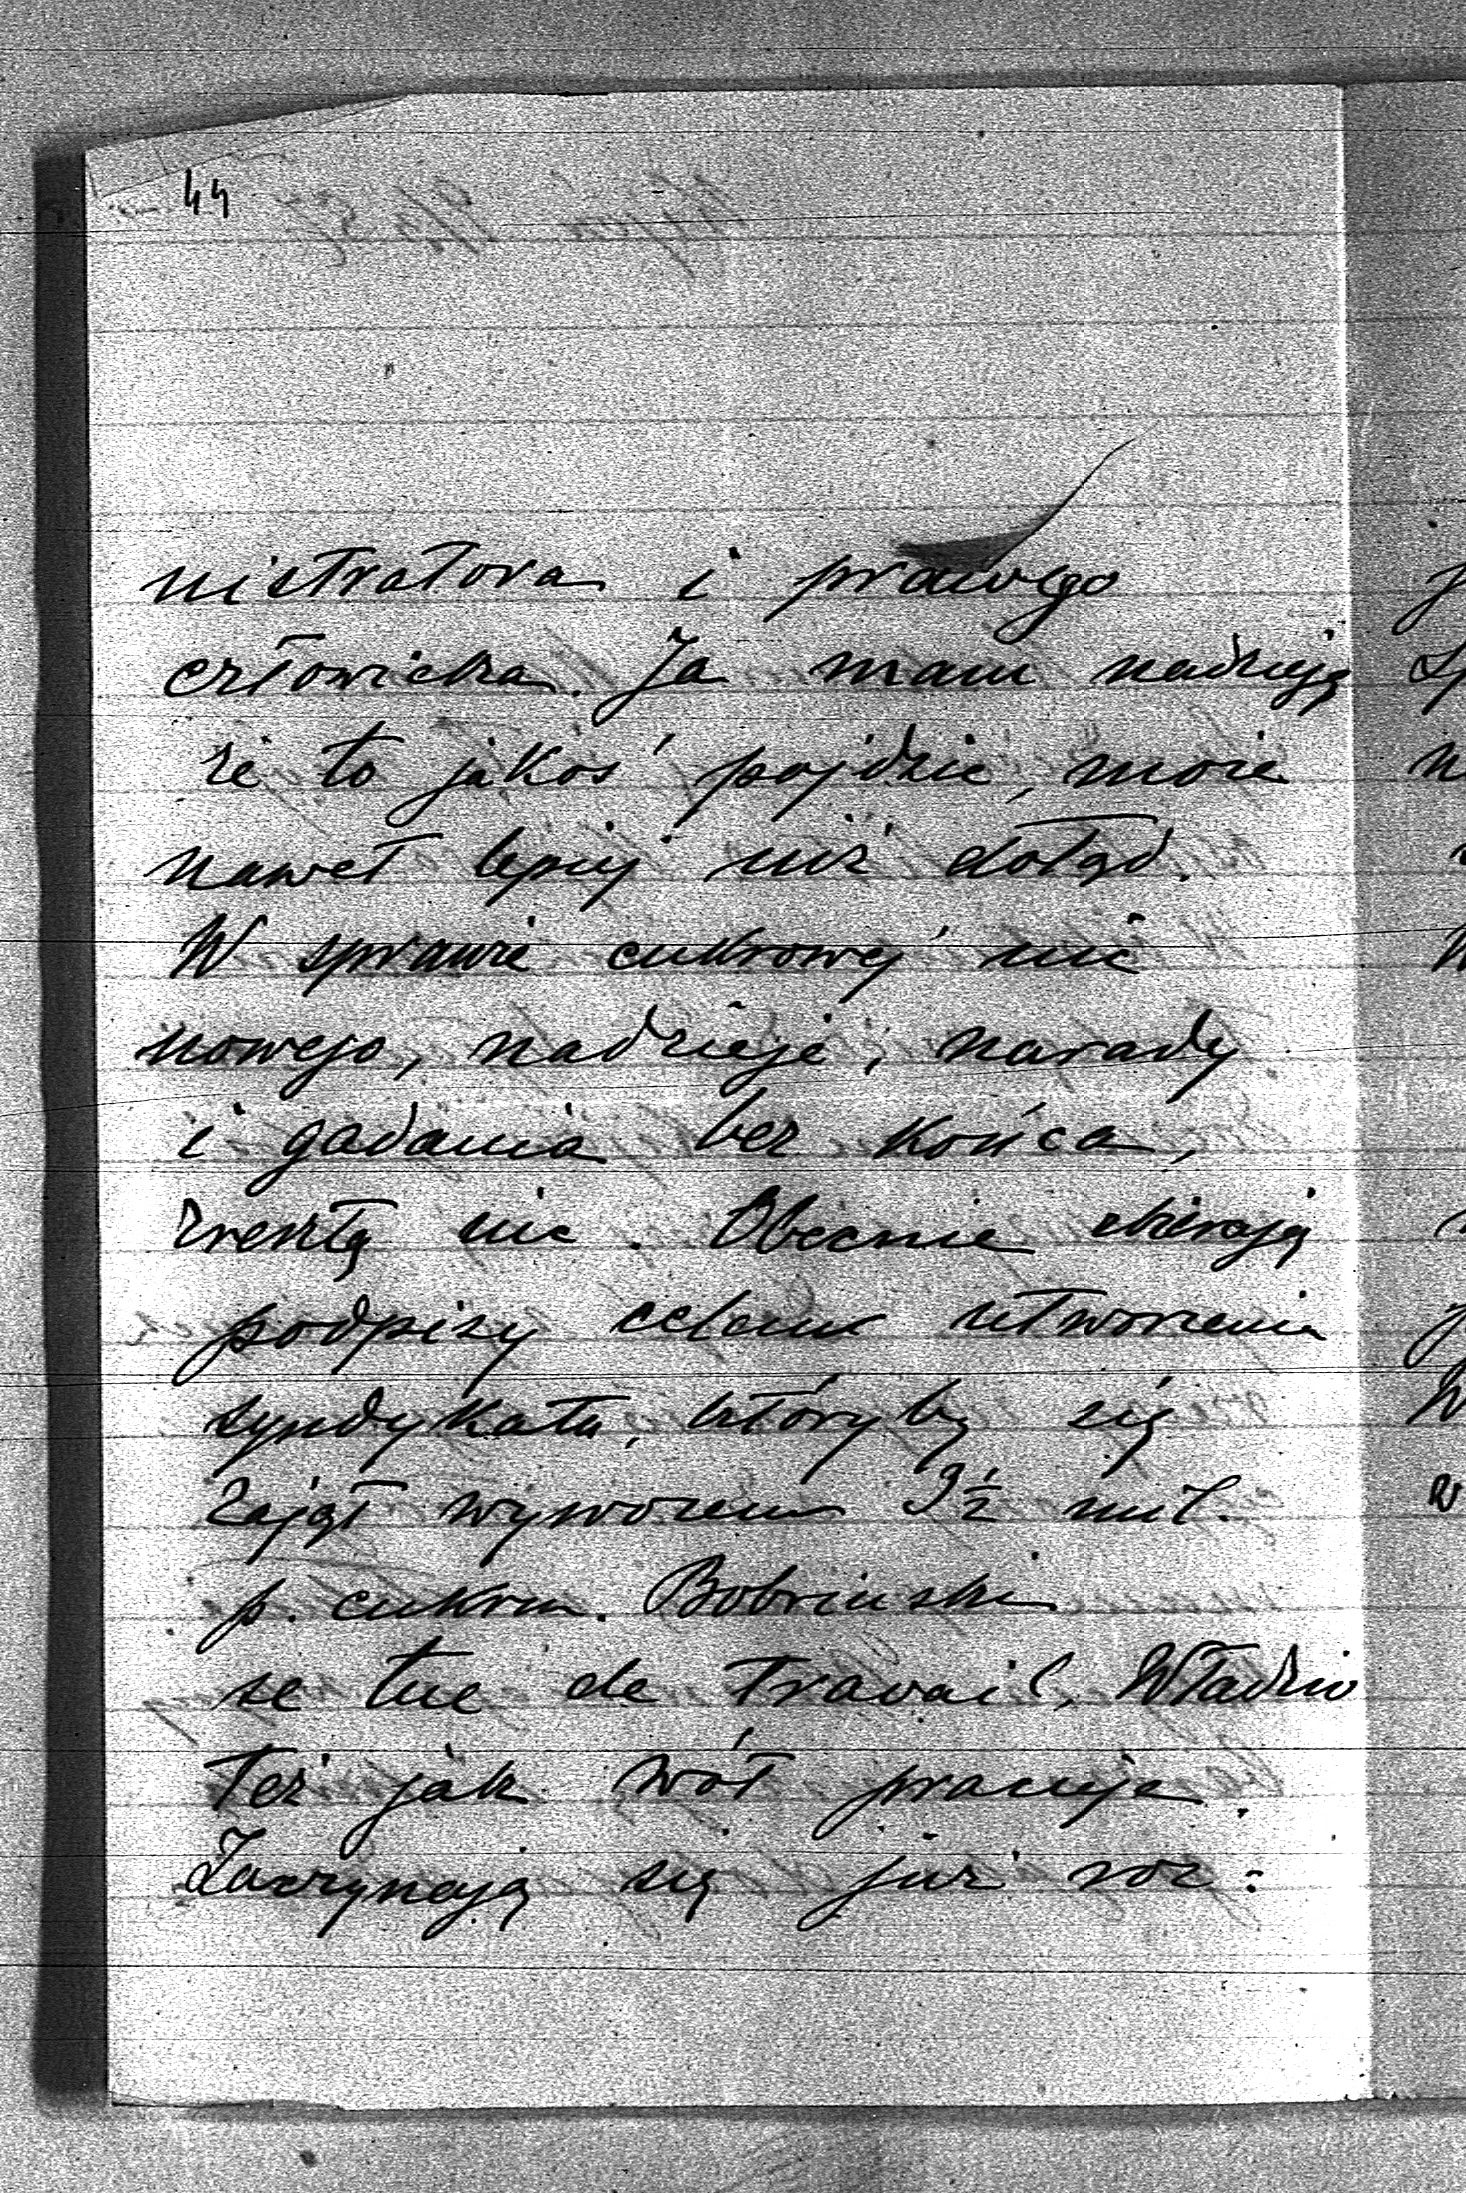 44
nistratora i prawego
człowieka. Ja mam nadzieję
że to jakoś pojdzie, może
nawet lepiej niż dotąd.
W sprawie cukrowej nic
nowego, nadzieje, narady
i gadania bez końca,
zresztą nic. Obecnie zbierają
podpisy celem utworzenia
syndykatu, któryby się
zajął wywozem 3½ mil.
p. cukru. Bobrinski
se tue de travail, Władzio
też jak wół pracuje.
Zaczynają się już roz: